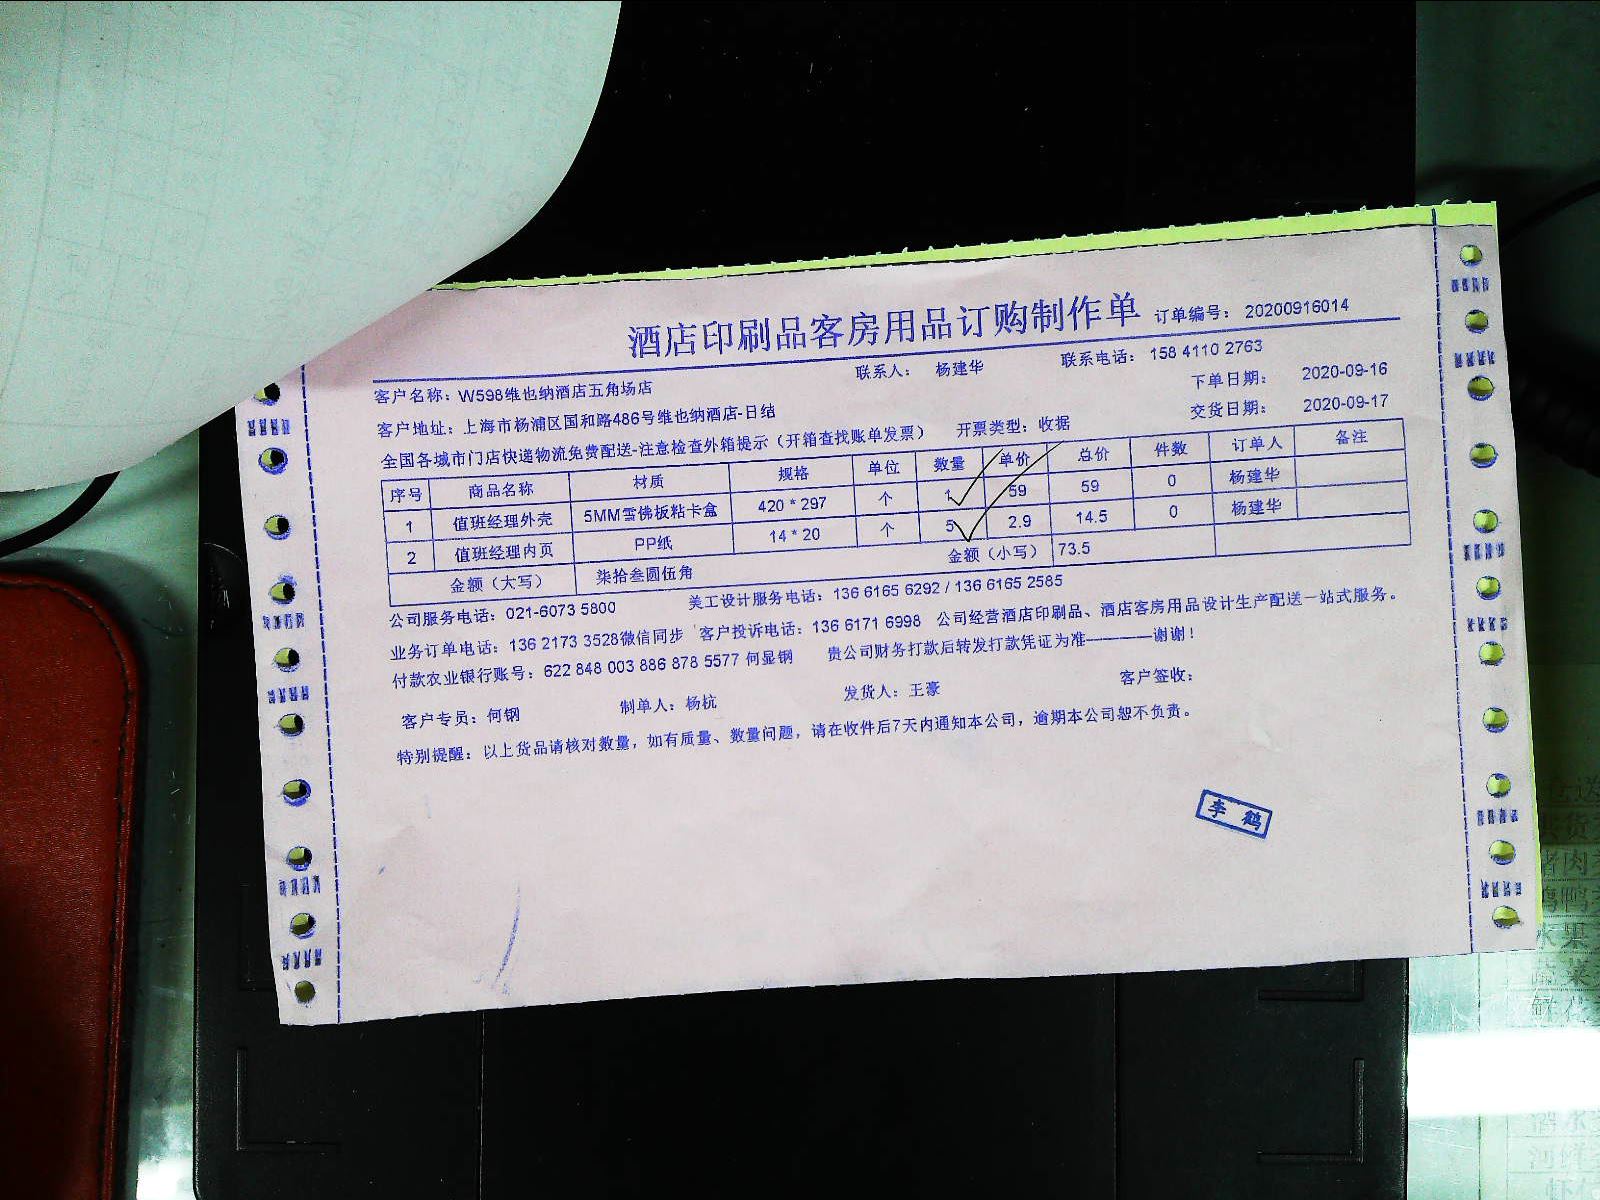 酒店印刷品客房用品订购制作单 订单编号： 20200916014
客户名称：W598维也纳酒店五角场店 联系人： 杨建华 联系电话： 158 4110 2763
下单日期： 2020-09-16
客户地址：上海市杨浦区国和路486号维也纳酒店-日结
交货日期： 2020-09-17
全国各城市门店快递物流免费配送-注意检查外箱提示（开箱查找账单发票） 开票类型：收据
序号 商品名称 材质 规格 单位 数量 单价 总价 件数 订单人 备注
1 值班经理外壳 5MM雪佛板粘卡盒 420 * 297 个 1 59 59 0 杨建华
2 值班经理内页 PP纸 14 * 20 个 5 2.9 14.5 0 杨建华
金额（大写） 柒拾叁圆伍角 金额（小写） 73.5
公司服务电话：021-6073 5800 美工设计服务电话：136 6165 6292 / 136 6165 2585
业务订单电话：136 2173 3528微信同步 客户投诉电话：136 6171 6998 公司经营酒店印刷品、酒店客房用品设计生产配送一站式服务。
付款农业银行账号：622 848 003 886 878 5577 何显钢 贵公司财务打款后转发打款凭证为准————谢谢！
客户专员：何钢 制单人：杨杭 发货人：王豪 客户签收：
特别提醒：以上货品请核对数量，如有质量、数量问题，请在收件后7天内通知本公司，逾期本公司恕不负责。
李 鹤